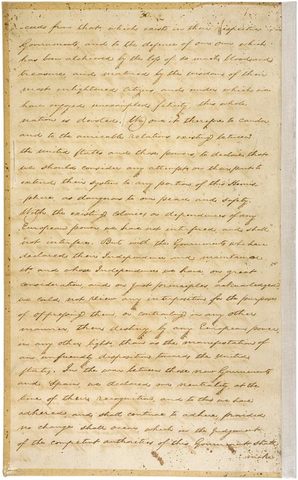 ceeds from that, which exists in their respective
Governments, and to the defence of our own, which
has been atchieved by the loss of so much blood and
treasure, and matured by the wisdom of their
most enlightened Citizens, and under which we
have enjoyed unexampled felicity, this whole
nation is devoted. We owe it therefore to candor
and to the amicable relations existing between
the united States and those powers to declare that
we should consider any attempt on their part to
extend their system to any portion of this Hemis
phere as dangerous to our peace and safety.
With the existing Colonies or dependencies of any
European power we have not interfered, and shall
not interfere. But with the Governments who have
declared their Independence, and maintained
it, and whose Independence we have, on great
consideration, and on just principles, acknowledged,
we could not view any interposition for the purpose
of oppressing them, or controuling in any other
manner, their destiny, by any European power
in any other light, than as the manifestation of
an unfriendly disposition towards the United
States. In the war between those new Governments
and Spain we declared our neutrality at the
time of their recognition, and to this we have
adhered, and shall continue to adhere, provided
no change shall occur, which in the judgement
of the competent authorities of this Government shall
make